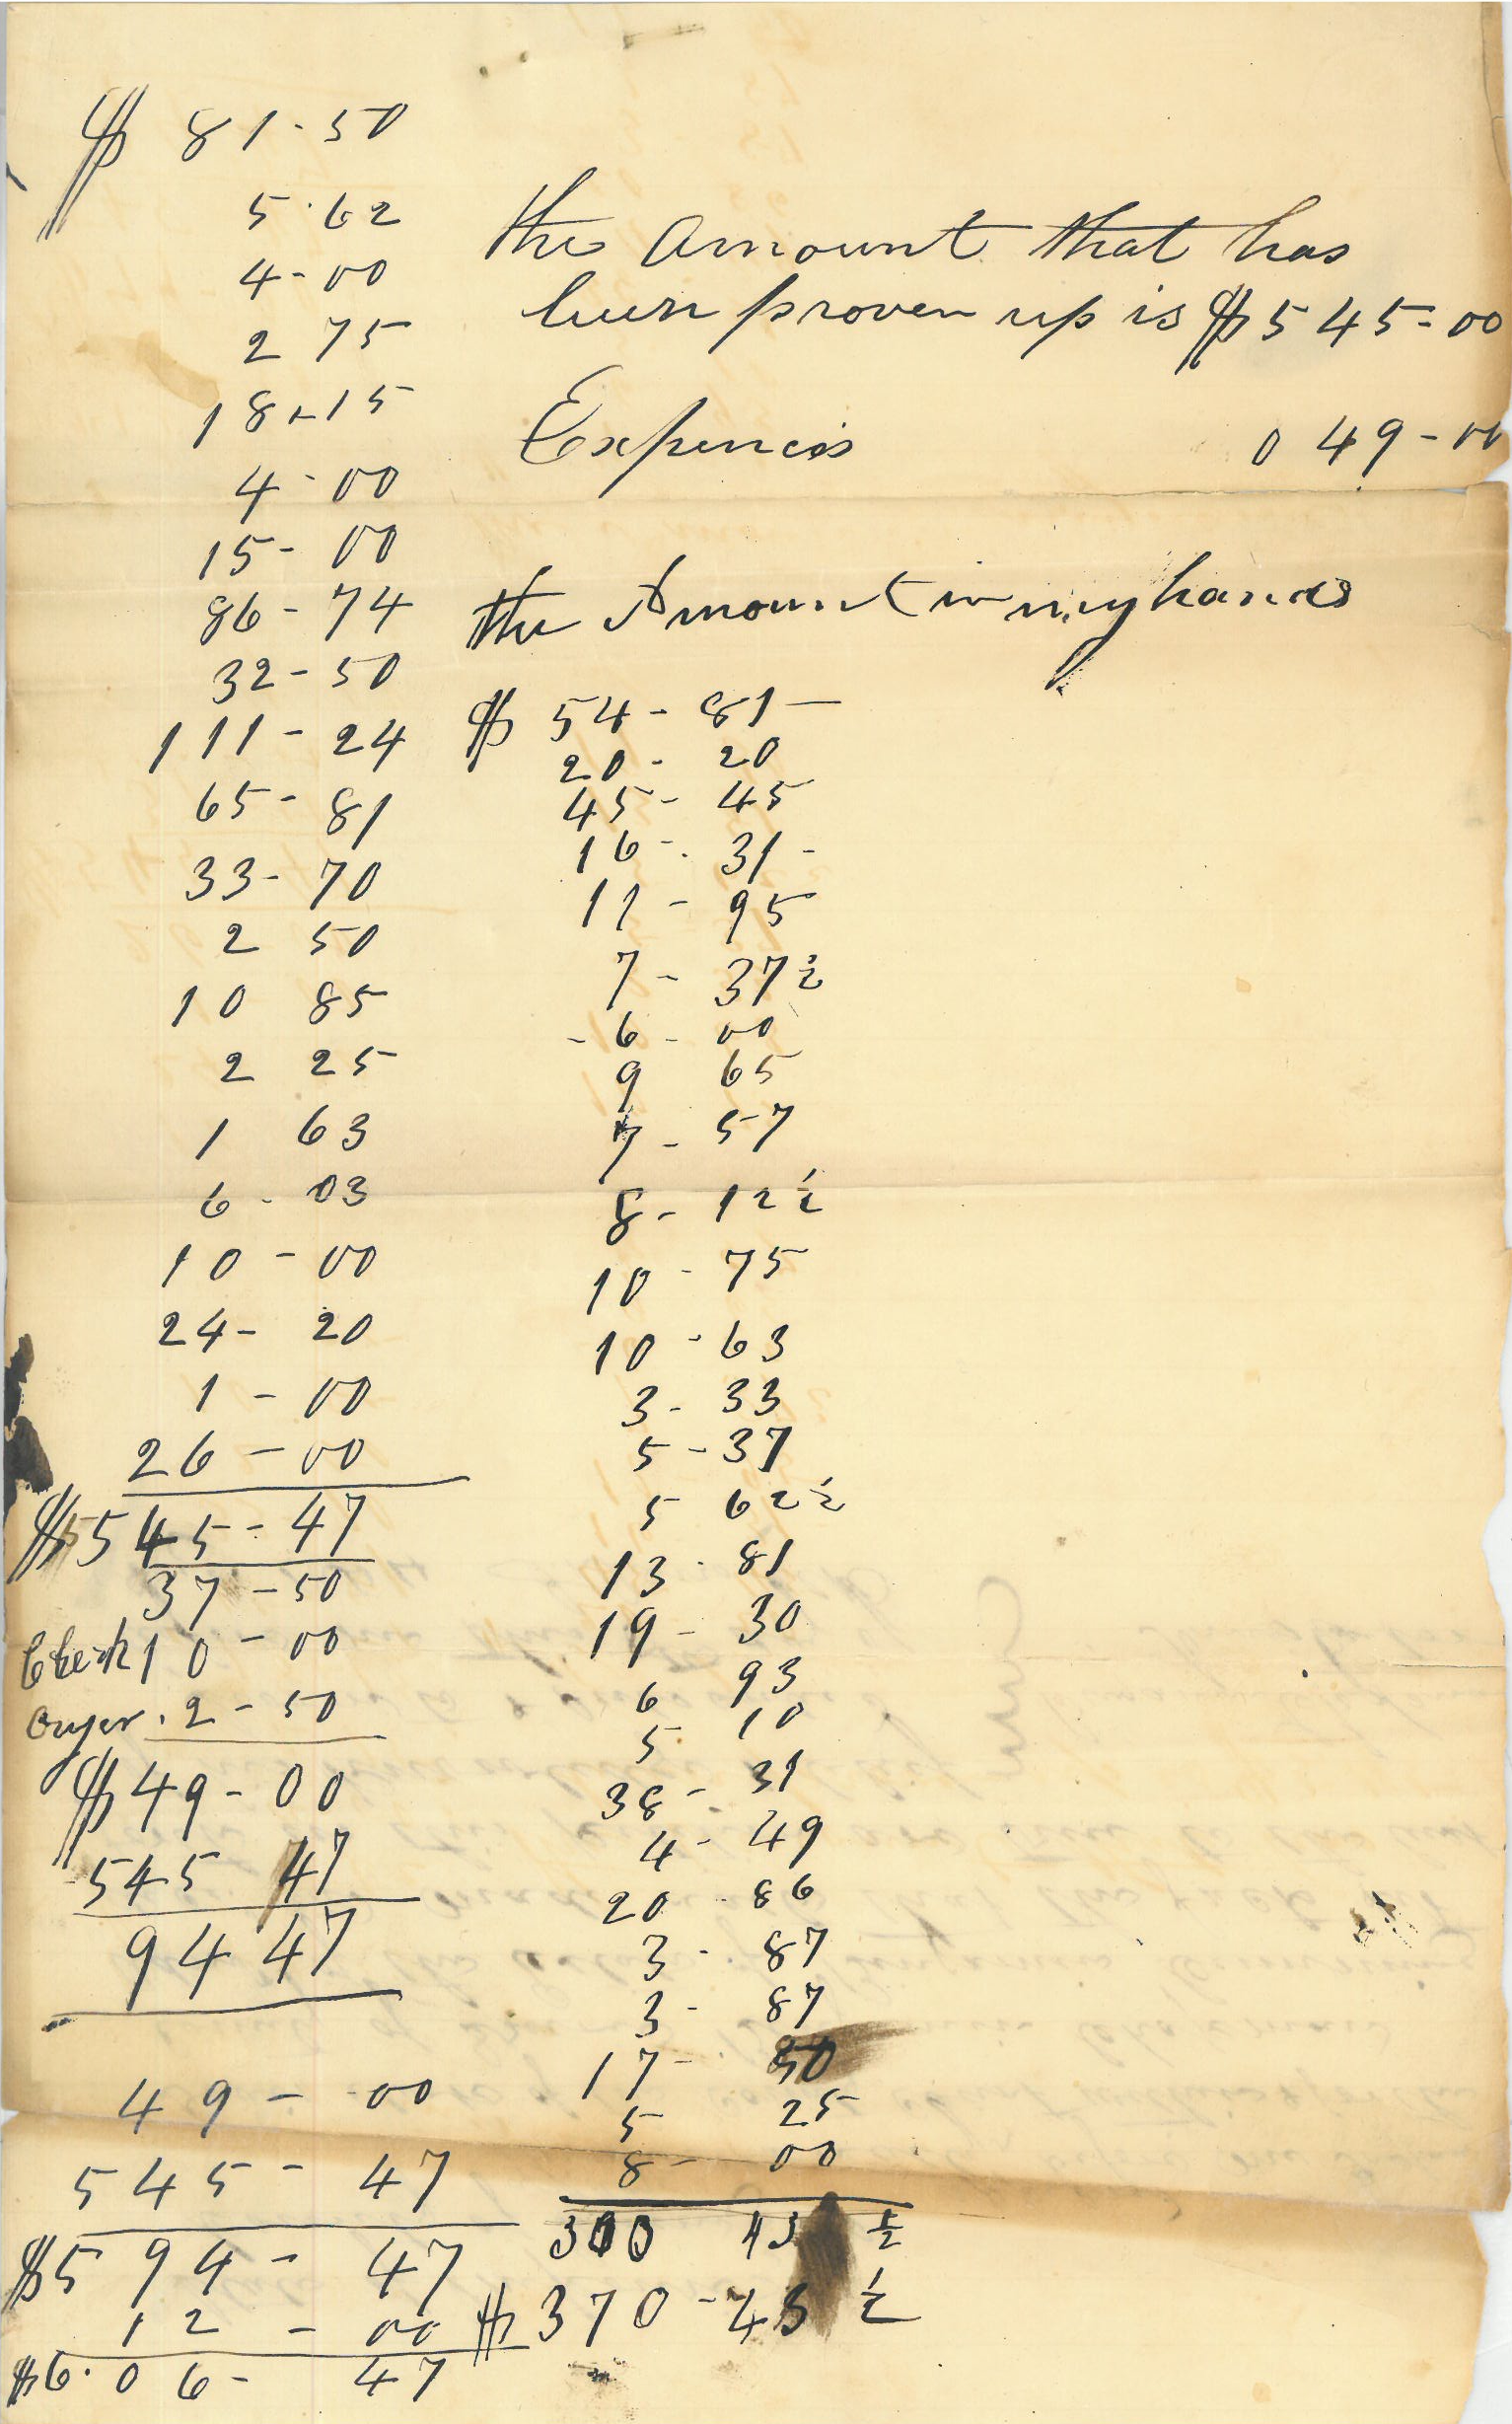 $ 81-50
5.62
4-00
2 75
18-15
4-00
15-00
86-74
32-50
111-24
65-81
33-70
2 50
10 85
2 25
1 63
6-03
10-00
24-20
1-00
26-00
$545-47
37-50
Clerk 10-00
2-50
$49-00
545 47
94 47
49-00
545-47
$594-47
12-00
$6.06-47
the Amount that has
been proven up is $545-00
Expences 049-00
the Amount in my hands
$ 54-81-
20-20
45-45
16-31-
11-95
7-37½
-6-00
9 65
7-57
8-12½
10-75
10-63
3-33
5-37
5 62½
13-81
19-30
6 93
5 10
38-31
4-49
20 86
3-87
3-87
17-50
5 25
8-00
½
$370-43½